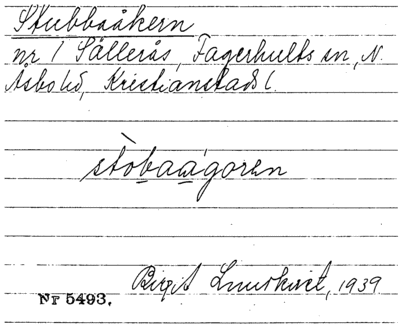 Stubbaåkern
nr 1 Sällerås, Fagerhults sn, N.
Åsbo hd, Kristianstads l.
stòbaágoren
Birgit Lundkvist, 1939
Nr 5493.